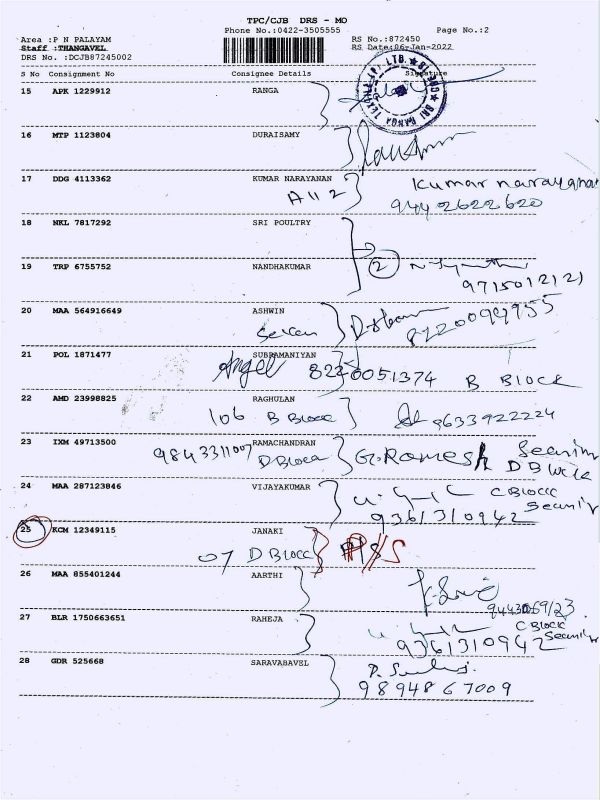 TPC/CJB DRS - MO
Phone No.:0422-3505555 Page No.:2
Area :P N PALAYAM RS No.:872450
Staff :THANGAVEL RS Date:06-Jan-2022
DRS No. :DCJB87245002
S No Consignment No Consignee Details Signature
15 APK 1229912 RANGA
16 MTP 1123804 DURAISAMY
17 DDG 4113362 KUMAR NARAYANAN Kumar narayanan
A112 9442622620
18 NKL 7817292 SRI POULTRY
19 TRP 6755752 NANDHAKUMAR 2
9715012121
20 MAA 564916649 ASHWIN
8220099955
21 POL 1871477 SUBRAMANIYAN
Angel 8220051374 B BLOCK
22 AMD 23998825 RAGHULAN
106 B Block 9633922224
23 IXM 49713500 RAMACHANDRAN
9843311007 D Block G.Ramesh D Block
24 MAA 287123846 VIJAYAKUMAR C BLOCK
9361310942
25 KCM 12349115 JANAKI
07 D Block
26 MAA 855401244 AARTHI
27 BLR 1750663651 RAHEJA C BLOCK
9361310942
28 GDR 525668 SARAVABAVEL
9894867009